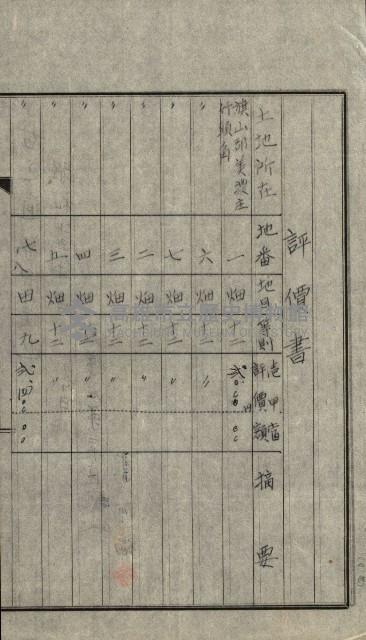 評價書
土地所在 地番 地目 等則 壱甲當評價額 摘要
旗山郡美濃庄竹頭角 一 畑 十二
〃 六 畑 十二 〃
〃 七 畑 十二 〃
〃 二 畑 十二 〃
〃 三 畑 十二 〃
〃 四 畑 十二 〃
〃 畑 十二 〃
〃 七八 田 九
高雄市立歷史博物館